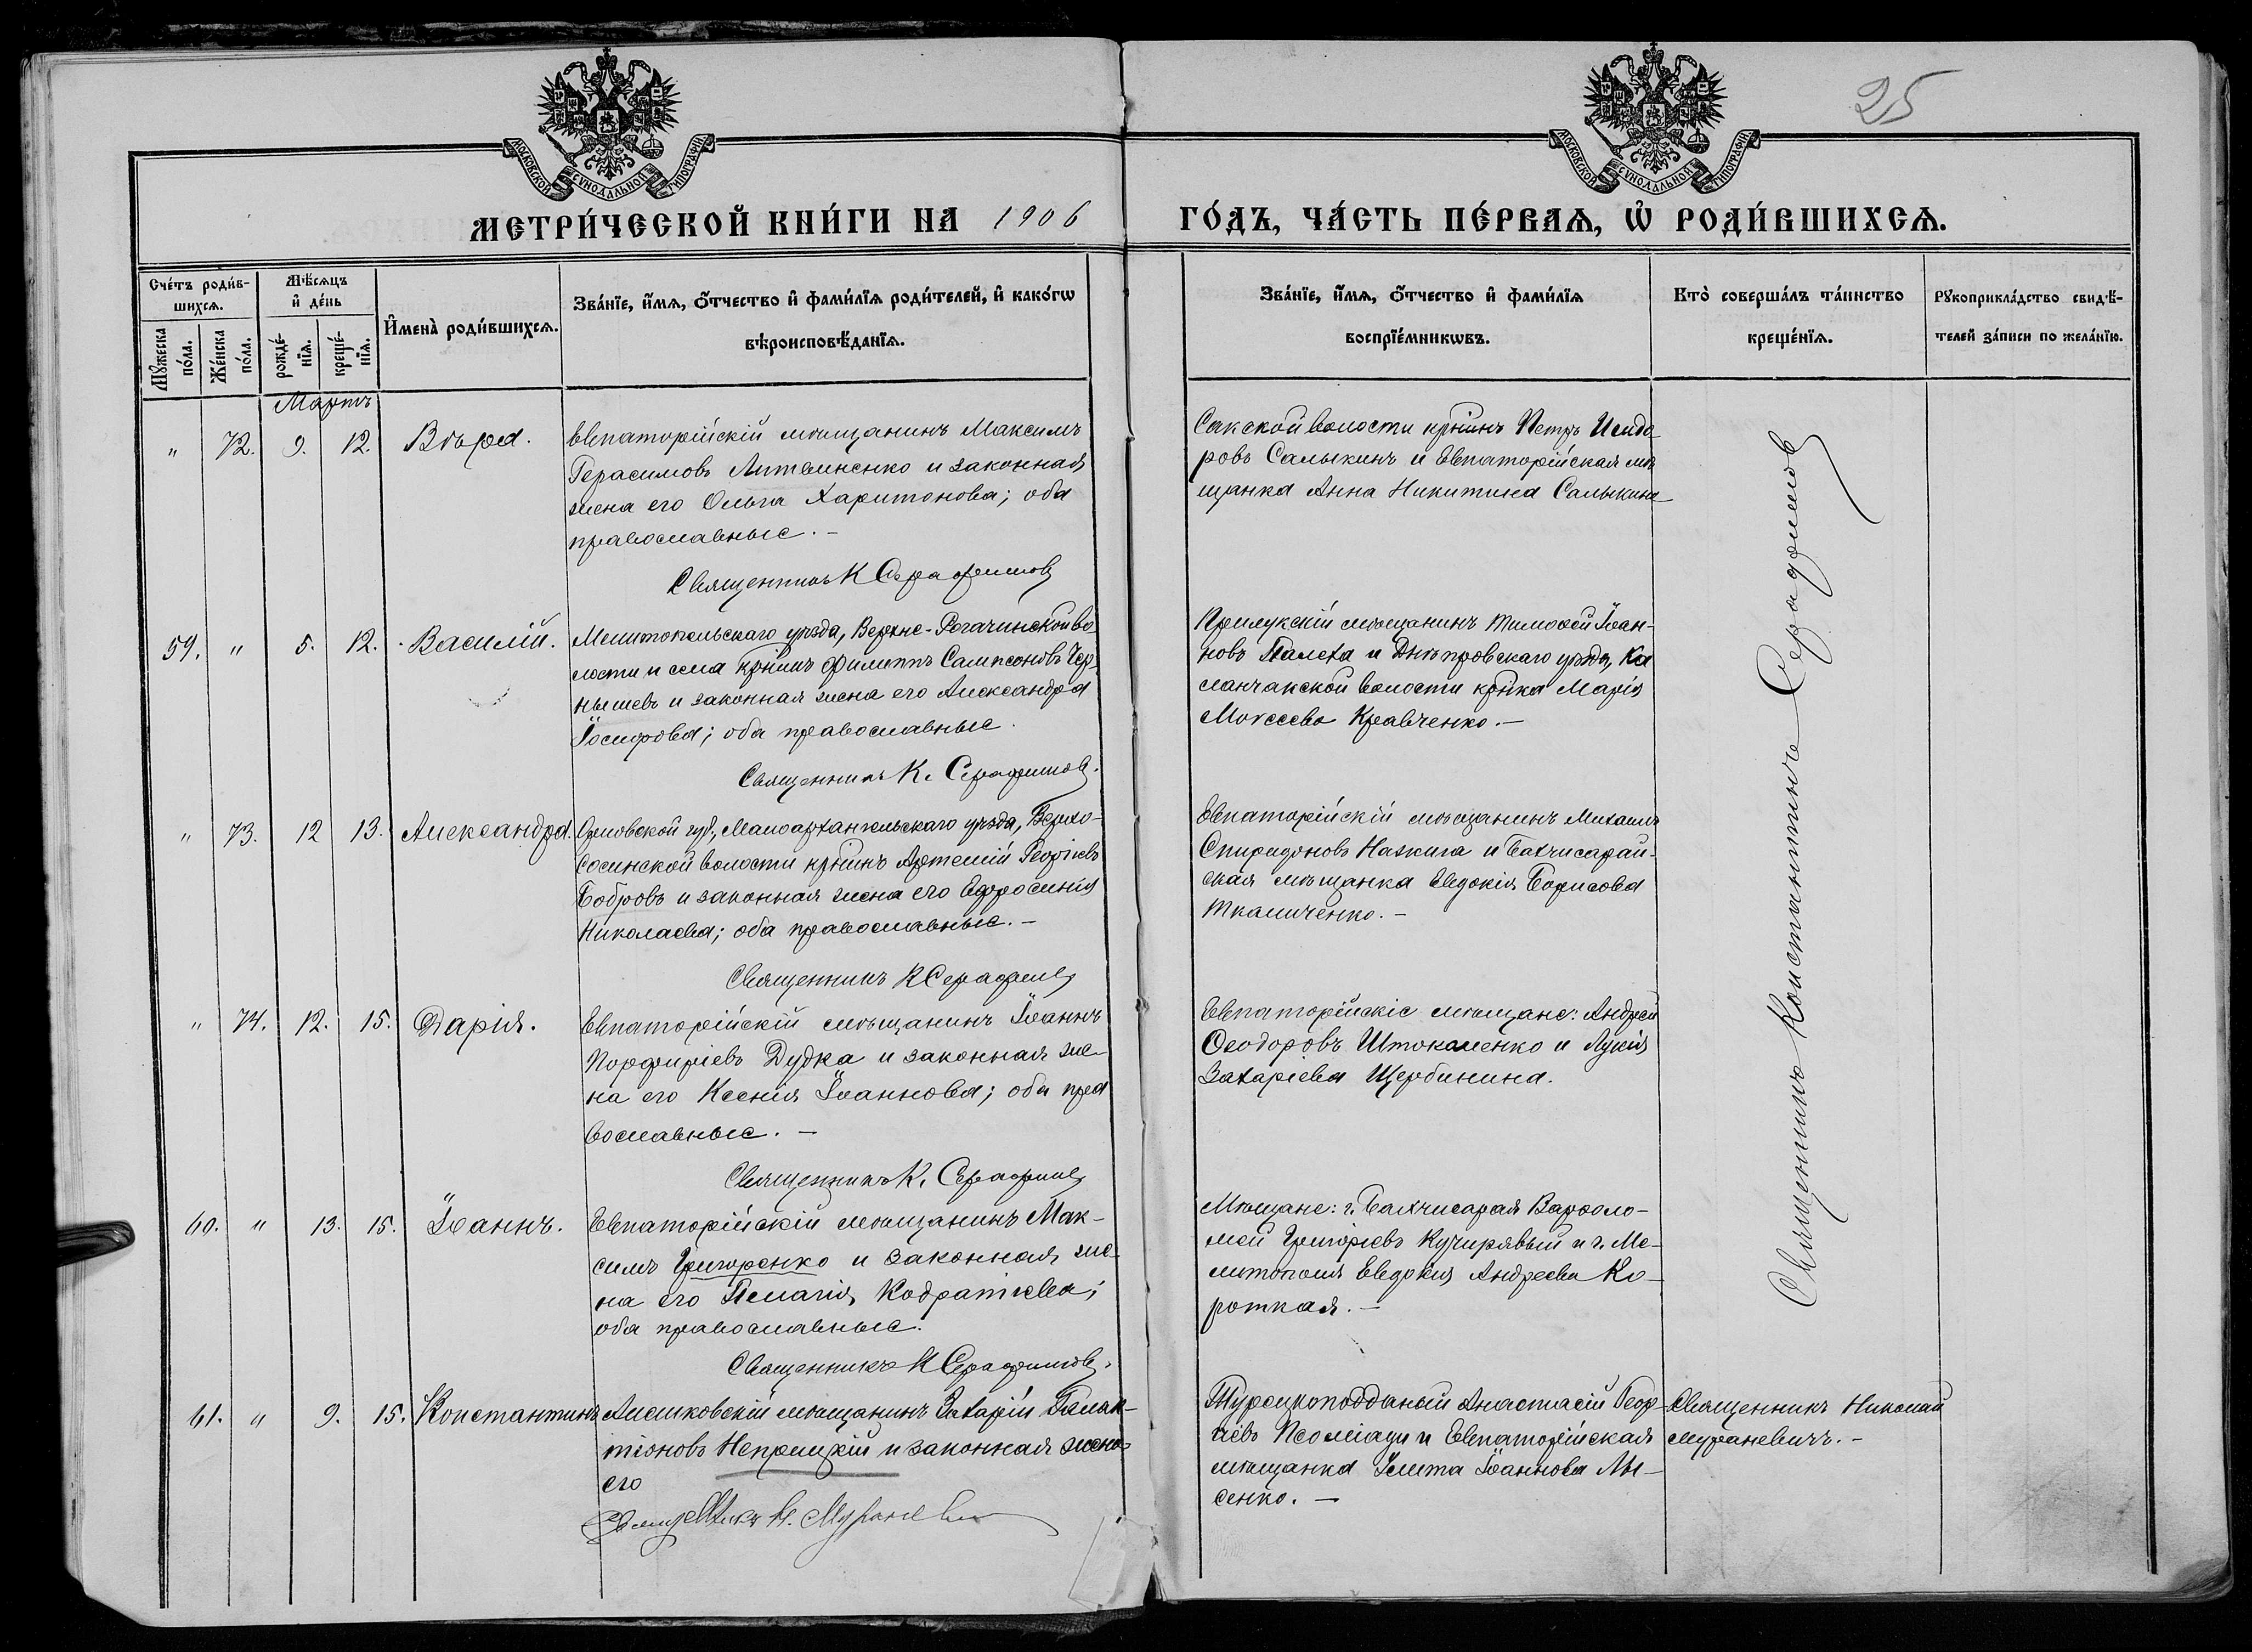 25
МОСКОВСКОЙ СѴНОДАЛЬНОЙ ТИПОГРАФІИ
МОСКОВСКОЙ СѴНОДАЛЬНОЙ ТИПОГРАФІИ
МЕТРИ́ЧЕСКОЙ КНИ́ГИ НА 1906 ГО́ДЪ, ЧА́СТЬ ПЕ́РВАѦ, Ѡ҆ РОДИ́ВШИХСѦ.
Сче́тъ роди́в-
шихсѧ.
Мꙋ́жеска по́ла.
Же́нска по́ла.
Мѣ́сѧцъ
и҆ де́нь
рожде́-
нїѧ.
креще́-
нїѧ.
И҆мена̀ роди́вшихсѧ.
Зва́нїе, и҆́мѧ, ѻ҆́тчество и҆ фами́лїѧ роди́телей, и҆ како́гѡ
вѣроисповѣ́данїѧ.
Зва́нїе, и҆́мѧ, ѻ҆́тчество и҆ фами́лїѧ
воспрїе́мникѡвъ.
Кто̀ соверша́лъ та́инство
креще́нїѧ.
Рꙋкоприкла́дство свидѣ́-
телей за́писи по жела́нїю.
Мартъ
" 72. 9. 12. Вѣра.
Евпаторійскій мѣщанинъ Максимъ
Герасимовъ Литвиненко и законная
жена его Ольга Харитонова; оба
православные. –
Священникъ К Серафимовъ
Сакской волости кр̅нинъ Петръ Исидо-
ровъ Салыкинъ и Евпаторійская мѣ-
щанка Анна Никитина Салыкина
59. " 5. 12. Василій.
Мелитопольскаго уѣзда, Верхне-Рогачинской во-
лости и села кр̅нинъ Филиппъ Сампсоновъ Чер-
нышевъ и законная жена его Александра
Іосифова; оба православные.
Священникъ К. Серафимовъ.
Прилукскій мѣщанинъ Тимоѳей Іоан-
новъ Палеха и Днѣпровскаго уѣзда, Ка
ланчакской волости кр̅нка Марія
Моѵсеева Кравченко. –
" 73. 12 13. Александра.
Орловской губ., Малоархангельскаго уѣзда, Верхо-
сосинской волости кр̅нинъ Артемій Георгіевъ
Бобровъ и законная жена его Ефросинія
Николаева; оба православные. –
Священникъ К Серафимовъ
Евпаторійскій мѣщанинъ Михаилъ
Спиридоновъ и Бахчисарай-
ская мѣщанка Евдокія Борисова
Ткаличенко. –
" 74. 12. 15. Дарія.
Евпаторійскій мѣщанинъ Іоаннъ
Порфиріевъ Дудка и законная же-
на его Ксенія Іоаннова; оба пра
вославные. –
Священникъ К. Серафимовъ
Евпаторійскіе мѣщане: Андрей
Ѳеодоровъ Штокаленко и Лукія
Захаріева Щербинина.
60. " 13. 15. Іоаннъ.
Евпаторійскій мѣщанинъ Мак-
симъ Григоренко и законная же-
на его Пелагія Кодратіева;
оба православные.
Священникъ К Серафимовъ.
Мѣщане: г. Бахчисарая Варѳоло-
мей Григоріевъ Кучирявый и г. Ме-
литополя Евдокія Андреева Ко-
роткая. –
Священникъ Константинъ Серафимовъ
61. " 9. 15. Константинъ
Алешковскій мѣщанинъ Захарій Галак-
тіоновъ Неприцкій и законная жена
его
Священникъ Н. Мураневичъ
Турецкоподданый Анастасій Геор-
гіевъ Псоміади и Евпаторійская
мѣщанка Іулита Іоаннова Лы-
сенко. –
Священникъ Николай
Мураневичъ. –